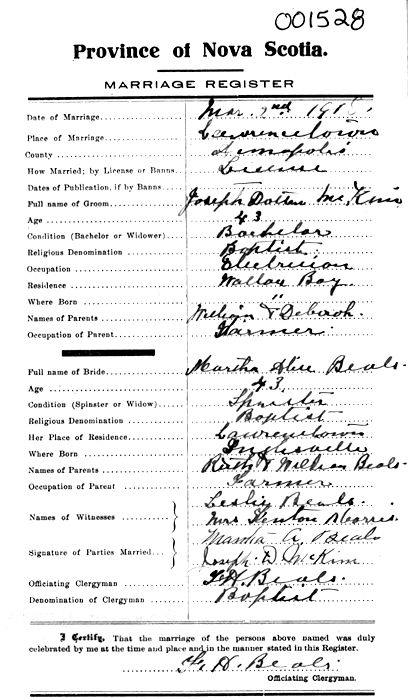 001528
Province of Nova Scotia.
MARRIAGE REGISTER
Date of Marriage Mar. 2nd 191
Place of Marriage Lawrencetown
County Annapolis
How Married; by License or Banns. License
Dates of Publication, if by Banns
Full name of Groom Joseph Dotten McKim
Age 43
Condition (Bachelor or Widower) Bachelor
Religious Denomination Baptist
Occupation Electrician
Residence Wallace Bay
Where Born "
Names of Parents William & Deborah
Occupation of Parent Farmer
Full name of Bride Martha Alice Beals
Age 43
Condition (Spinster or Widow) Spinster
Religious Denomination Baptist
Her Place of Residence Lawrencetown
Where Born Inglisville
Names of Parents Ruth & William Beals
Occupation of Parent Farmer
Names of Witnesses Leslie Beals.
Mrs Morris
Signature of Parties Married Martha A. Beals
Joseph D. McKim
Officiating Clergyman F H Beals.
Denomination of Clergyman Baptist
I Certify, That the marriage of the persons above named was duly
celebrated by me at the time and place and in the manner stated in this Register.
H. Beals
Officiating Clergyman.